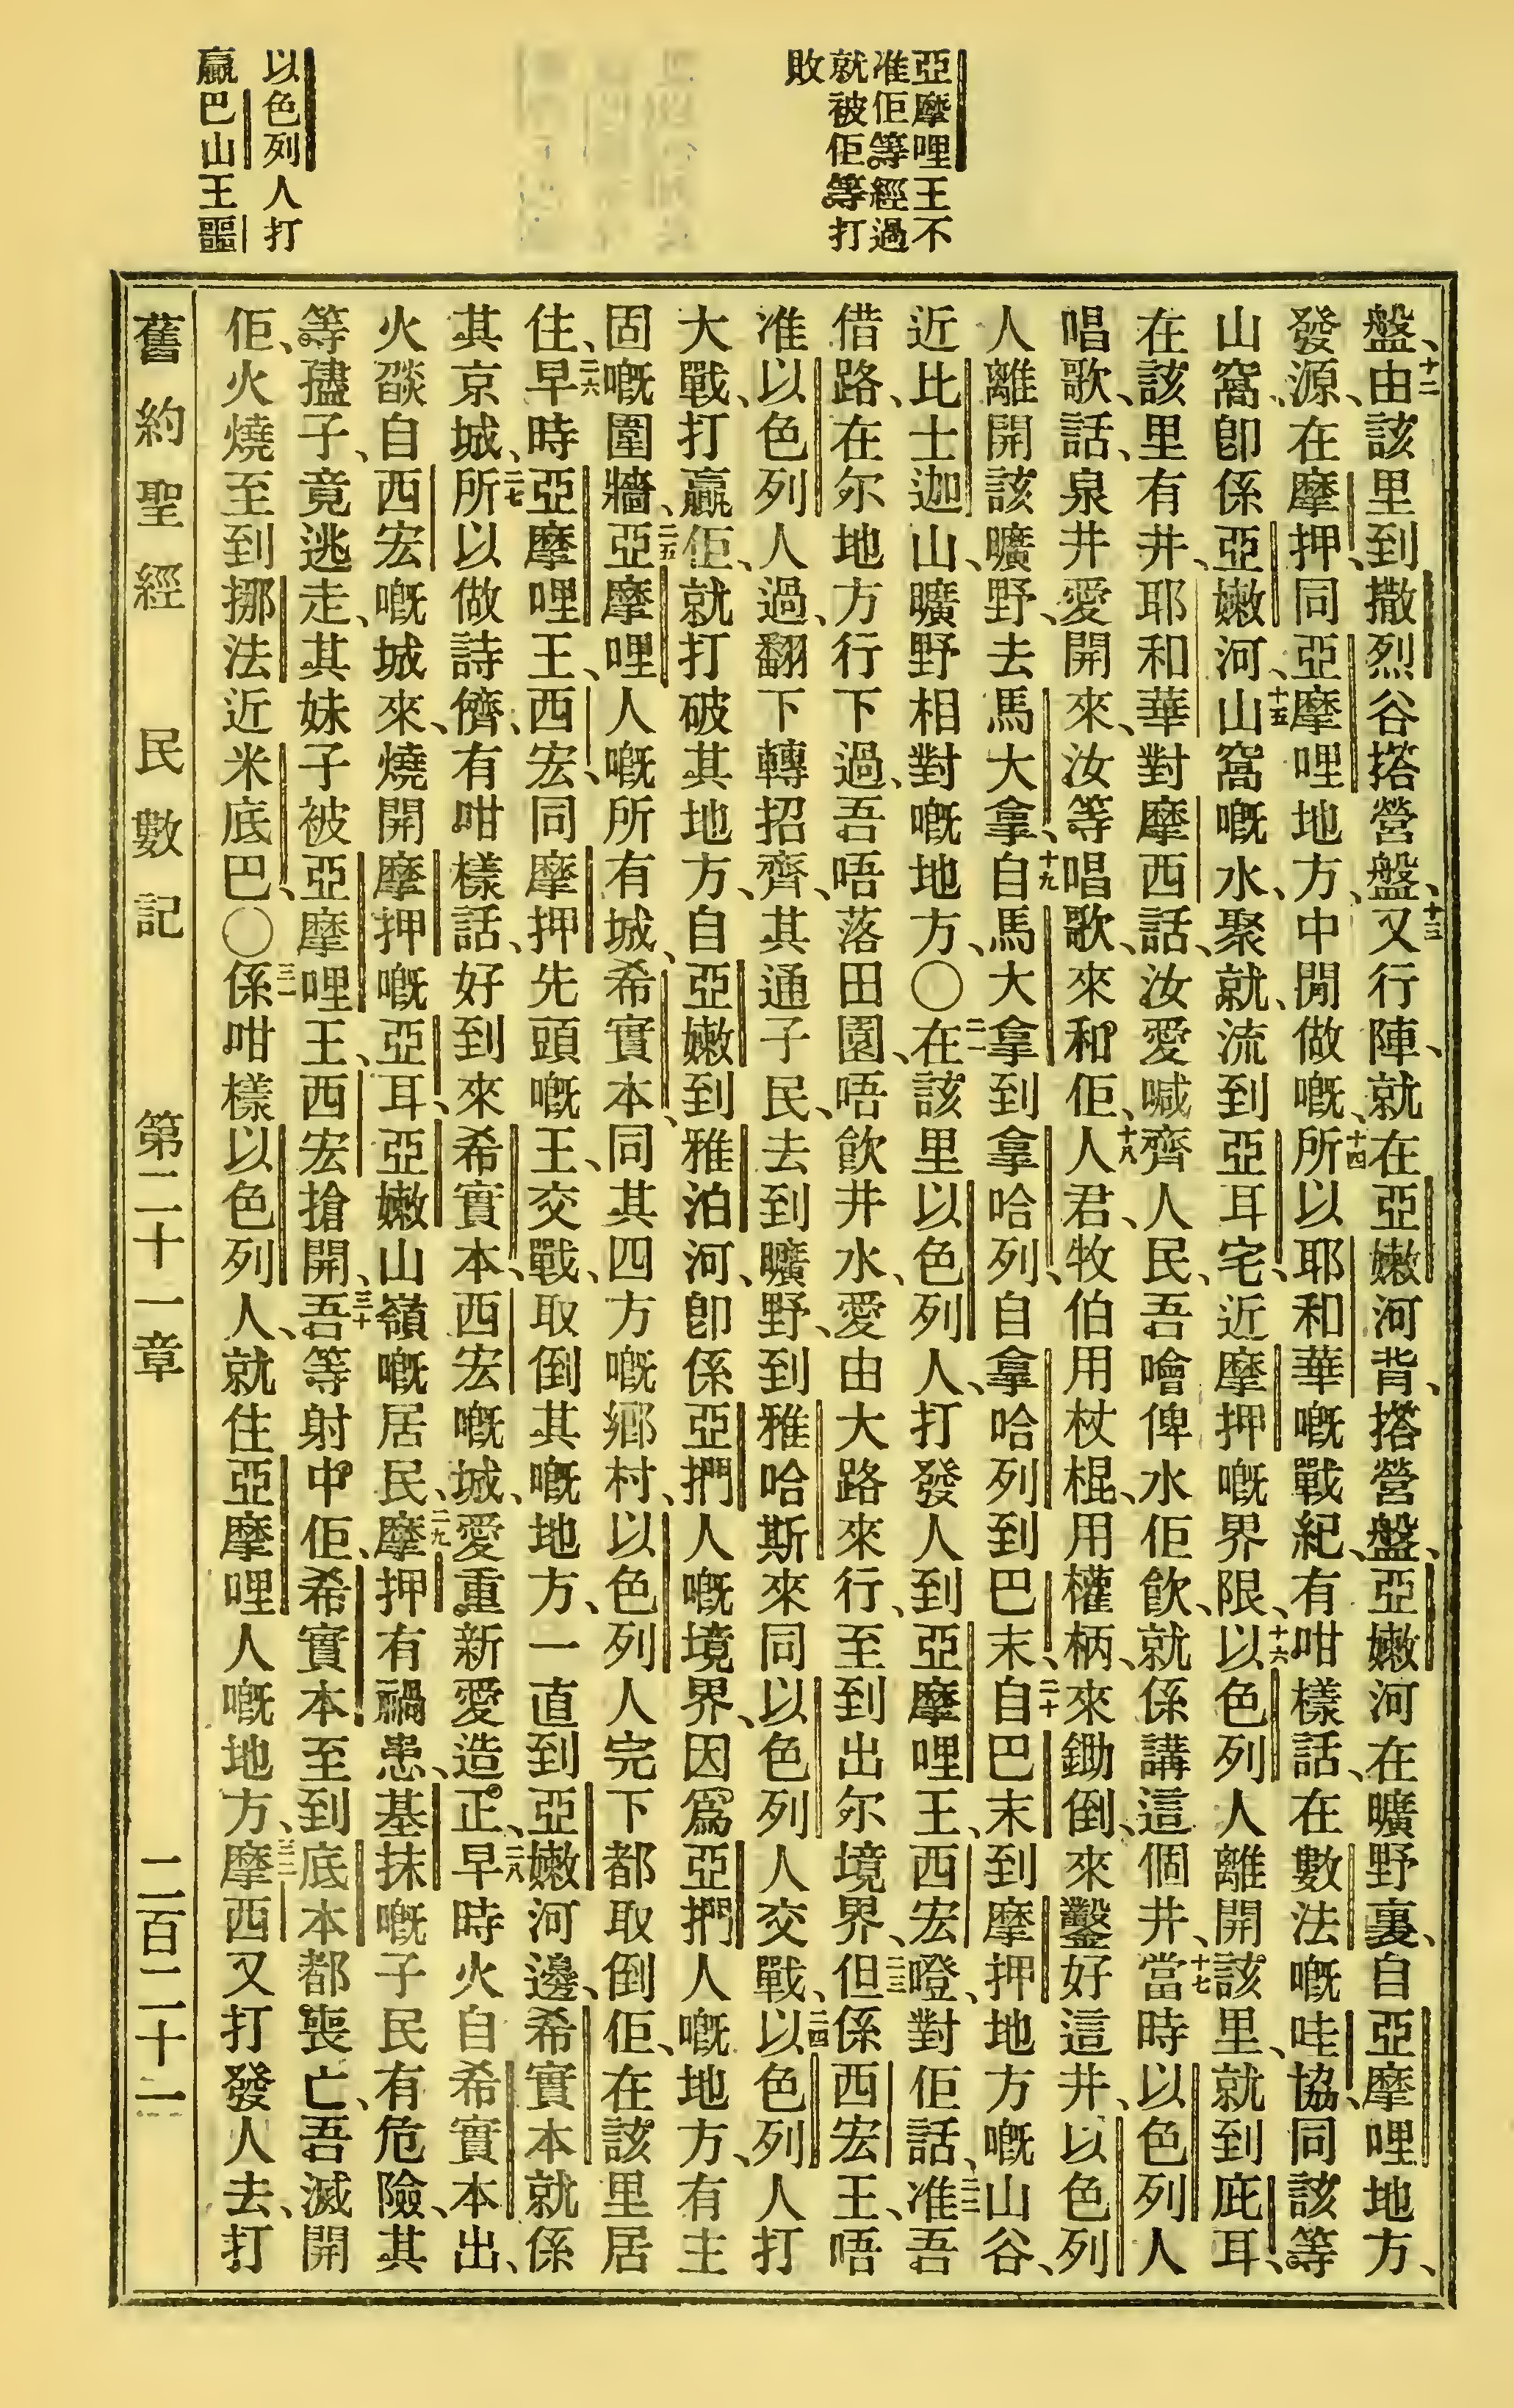 亞摩哩王不
准佢等經過
就被佢等打
敗
以色列人打
贏巴山王噩
盤、十二由該里到撒烈谷搭營盤、十三又行陣、就在亞嫩河背、搭營盤、亞嫩河在曠野裏、自亞摩哩地方、
發源、在摩押、同亞摩哩地方、中閒做嘅、十四所以耶和華嘅戰紀、有咁樣話、在數法嘅哇協、同該等
山窩、卽係亞嫩河、十五山窩嘅水、聚就、流到亞耳宅、近摩押嘅界限、十六以色列人離開該里、就到庇耳、
在該里有井、耶和華對摩西話、汝愛喊齊人民、吾噲俾水佢飮、就係講這個井、十七當時以色列人
唱歌、話、泉井愛開來、汝等唱歌、來和佢、十八人君、牧伯用杖棍、用權柄、來鋤倒、來鑿好這井、以色列
人離開該曠野、去馬大拿、十九自馬大拿到拿哈列、自拿哈列到巴末、二十自巴末到摩押地方嘅山谷、
近比士迦山、曠野相對嘅地方、〇二一在該里以色列人、打發人到亞摩哩王、西宏嶝、對佢話、二二准吾
借路、在尔地方行下過、吾唔落田園、唔飮井水、愛由大路來行、至到出尔境界、二三但係西宏王、唔
准以色列人過、翻下轉招齊、其通子民、去到曠野、到雅哈斯來同以色列人交戰、二四以色列人打
大戰、打贏佢、就打破其地方、自亞嫩到雅泊河、卽係亞捫人嘅境界、因爲亞捫人嘅地方、有主
固嘅圍牆、二五亞摩哩人嘅所有城、希實本、同其四方嘅鄕村、以色列人完下都取倒佢、在該里居
住、二六早時亞摩哩王、西宏、同摩押先頭嘅王、交戰、取倒其嘅地方、一直到亞嫩河邊、希實本就係
其京城、二七所以做詩儕、有咁樣話、好到來希實本、西宏嘅城、愛重新愛造正、二八早時火自希實本出、
火燄自西宏嘅城來、燒開摩押嘅亞耳、亞嫩山嶺嘅居民、二九摩押有禍患、基抹嘅子民有危險、其
等孻子、竟逃走、其妹子被亞摩哩王、西宏搶開、三十吾等射中佢、希實本至到底本都喪亡、吾滅開
佢、火燒至到挪法近米底巴、〇三一係咁樣以色列人、就住亞摩哩人嘅地方、三二摩西又打發人去、打
舊約聖經　民數記　第二十一章　二百二十二